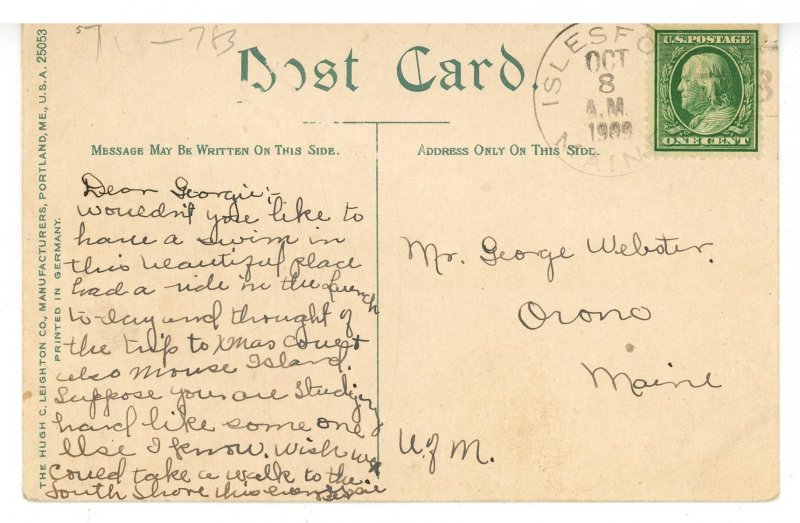 Post Card.
ISLESFO
OCT
8
A.M.
1909
MAINE
U.S. POSTAGE
ONE CENT
MESSAGE MAY BE WRITTEN ON THIS SIDE.
ADDRESS ONLY ON THIS SIDE.
THE HUGH C. LEIGHTON CO., MANUFACTURERS, PORTLAND, ME., U.S.A. 25053
PRINTED IN GERMANY.
Dear Georgie:-
Wouldn't you like to
have a swim in
this beautiful place
had a ride in the launch
to-day and thought of
the trip to Xmas
also Mouse Island.
Suppose you are Studying
hard like some one
else I know. Wish we
Could take a walk to the
South Shore this
Mr. George Webster.
Orono
Maine
U of M.